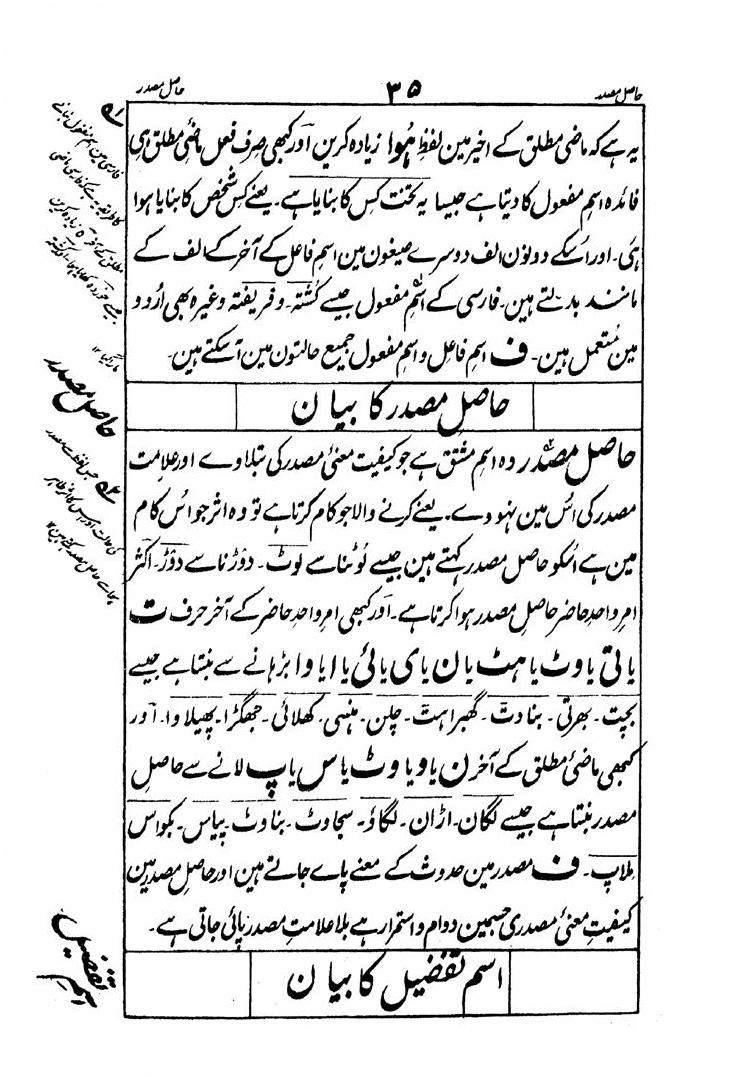 حاصل مصدر ۳۵ حاصل مصدر
یہ ہے کہ ماضی مطلق کے اخیر مین لفظِ ہُوا زیادہ کرین اَور کبھی صِرف فعل ماضیِ مطلق ہی
فائدہ اسمِ مفعول کا دیتا ہے جیسا یہ تخت کس کا بنایا ہے۔ یعنے کِس شخص کا بنایا ہوا
ہی۔ اور اُسکے دونون الف دوسرے صیغون مین اسم فاعل کے آخر کے الف کے
مانند بدلتے ہین۔ فارسی کے اسم مفعول جیسے کُشتہ۔ و فریفتہ وغیرہ بھی اُردو
مین مُستعمل ہین۔ ف اسمِ فاعل و اسم مفعول جمیع حالتون مین آسکتے ہین۔
حاصلِ مصدر کا بیان
حاصل مصدر وہ اسمِ مشتق ہے جو کیفیت معنیٔ مصدر کی بتلاوے اور علامت
مصدر کی اُس مین نہووے۔ یعنے کرنے والا جو کام کرتا ہے تو وہ اثر جو اُس کام
مین ہے اُسکو حاصل مصدر کہتے ہین جیسے لُوٹنا سے لوٹ۔ دوڑنا سے دوڑ۔ اکثر
امرِ واحد حاضر حاصلِ مصدر ہوا کرتا ہے۔ اَور کبھی امرِ واحد حاضر کے آخر حرف ت
یا تی یا وٹ یا ہٹ یا ن یا ی یا ئی یا ا یا وا بڑہانے سے بنتا ہے جیسے
بچت۔ بھرتی۔ بناوٹ۔ گھبراہٹ۔ چلن۔ ہنسی۔ کھلائی۔ جھگڑا۔ پھیلاوا۔ اَور
کبھی ماضیٔ مطلق کے آخر ن یا و یا وٹ یا س یا پ لانے سے حاصلِ
مصدر بنتا ہے جیسے لگان۔ اڑان۔ لگاؤ۔ سجاوٹ۔ بناوٹ۔ پیاس۔ بکواس
ملاپ۔ ف مصدر مین حدوث کے معنے پاے جاتے ہین اور حاصلِ مصدر مین
کیفیتِ معنیٔ مصدری جسمین دوام و استمرار ہے بلا علامتِ مصدر پائی جاتی ہے۔
اسم تفضیل کا بیان
حاصل مصدر
اسم تفضیل